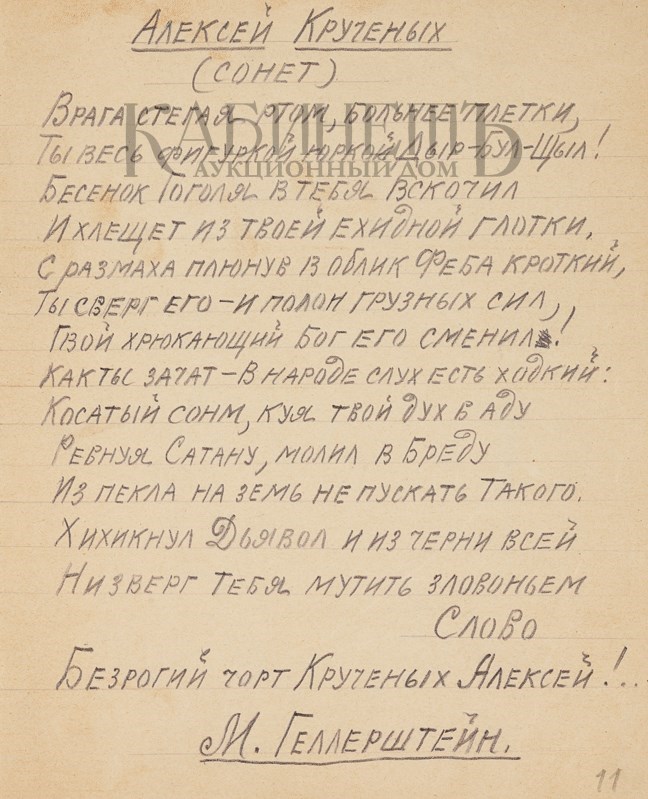 Алексей Крученых
(сонет)
Врага стегая ртом, больнее плетки,
Ты весь фигуркой юркой Дыр-бул-Щыл!
Бесенок Гоголя в тебя вскочил
И хлещет из твоей ехидной глотки.
С размаха плюнув в облик Феба кроткий,
Ты сверг его – и полон грузных сил,
Твой хрюкающий Бог его сменил!
Как ты зачат – в народе слух есть ходкий:
Косатый сонм, куя твой дух в аду
Ревнуя Сатану, молил в бреду
Из пекла на земь не пускать такого.
Хихикнул Дьявол и из черни всей
Низверг тебя мутить зловоньем
Слово
Безрогий чорт Крученых Алексей!..
М. Геллерштейн.
11
КАБИНЕТЪ
АУКЦИОННЫЙ ДОМ